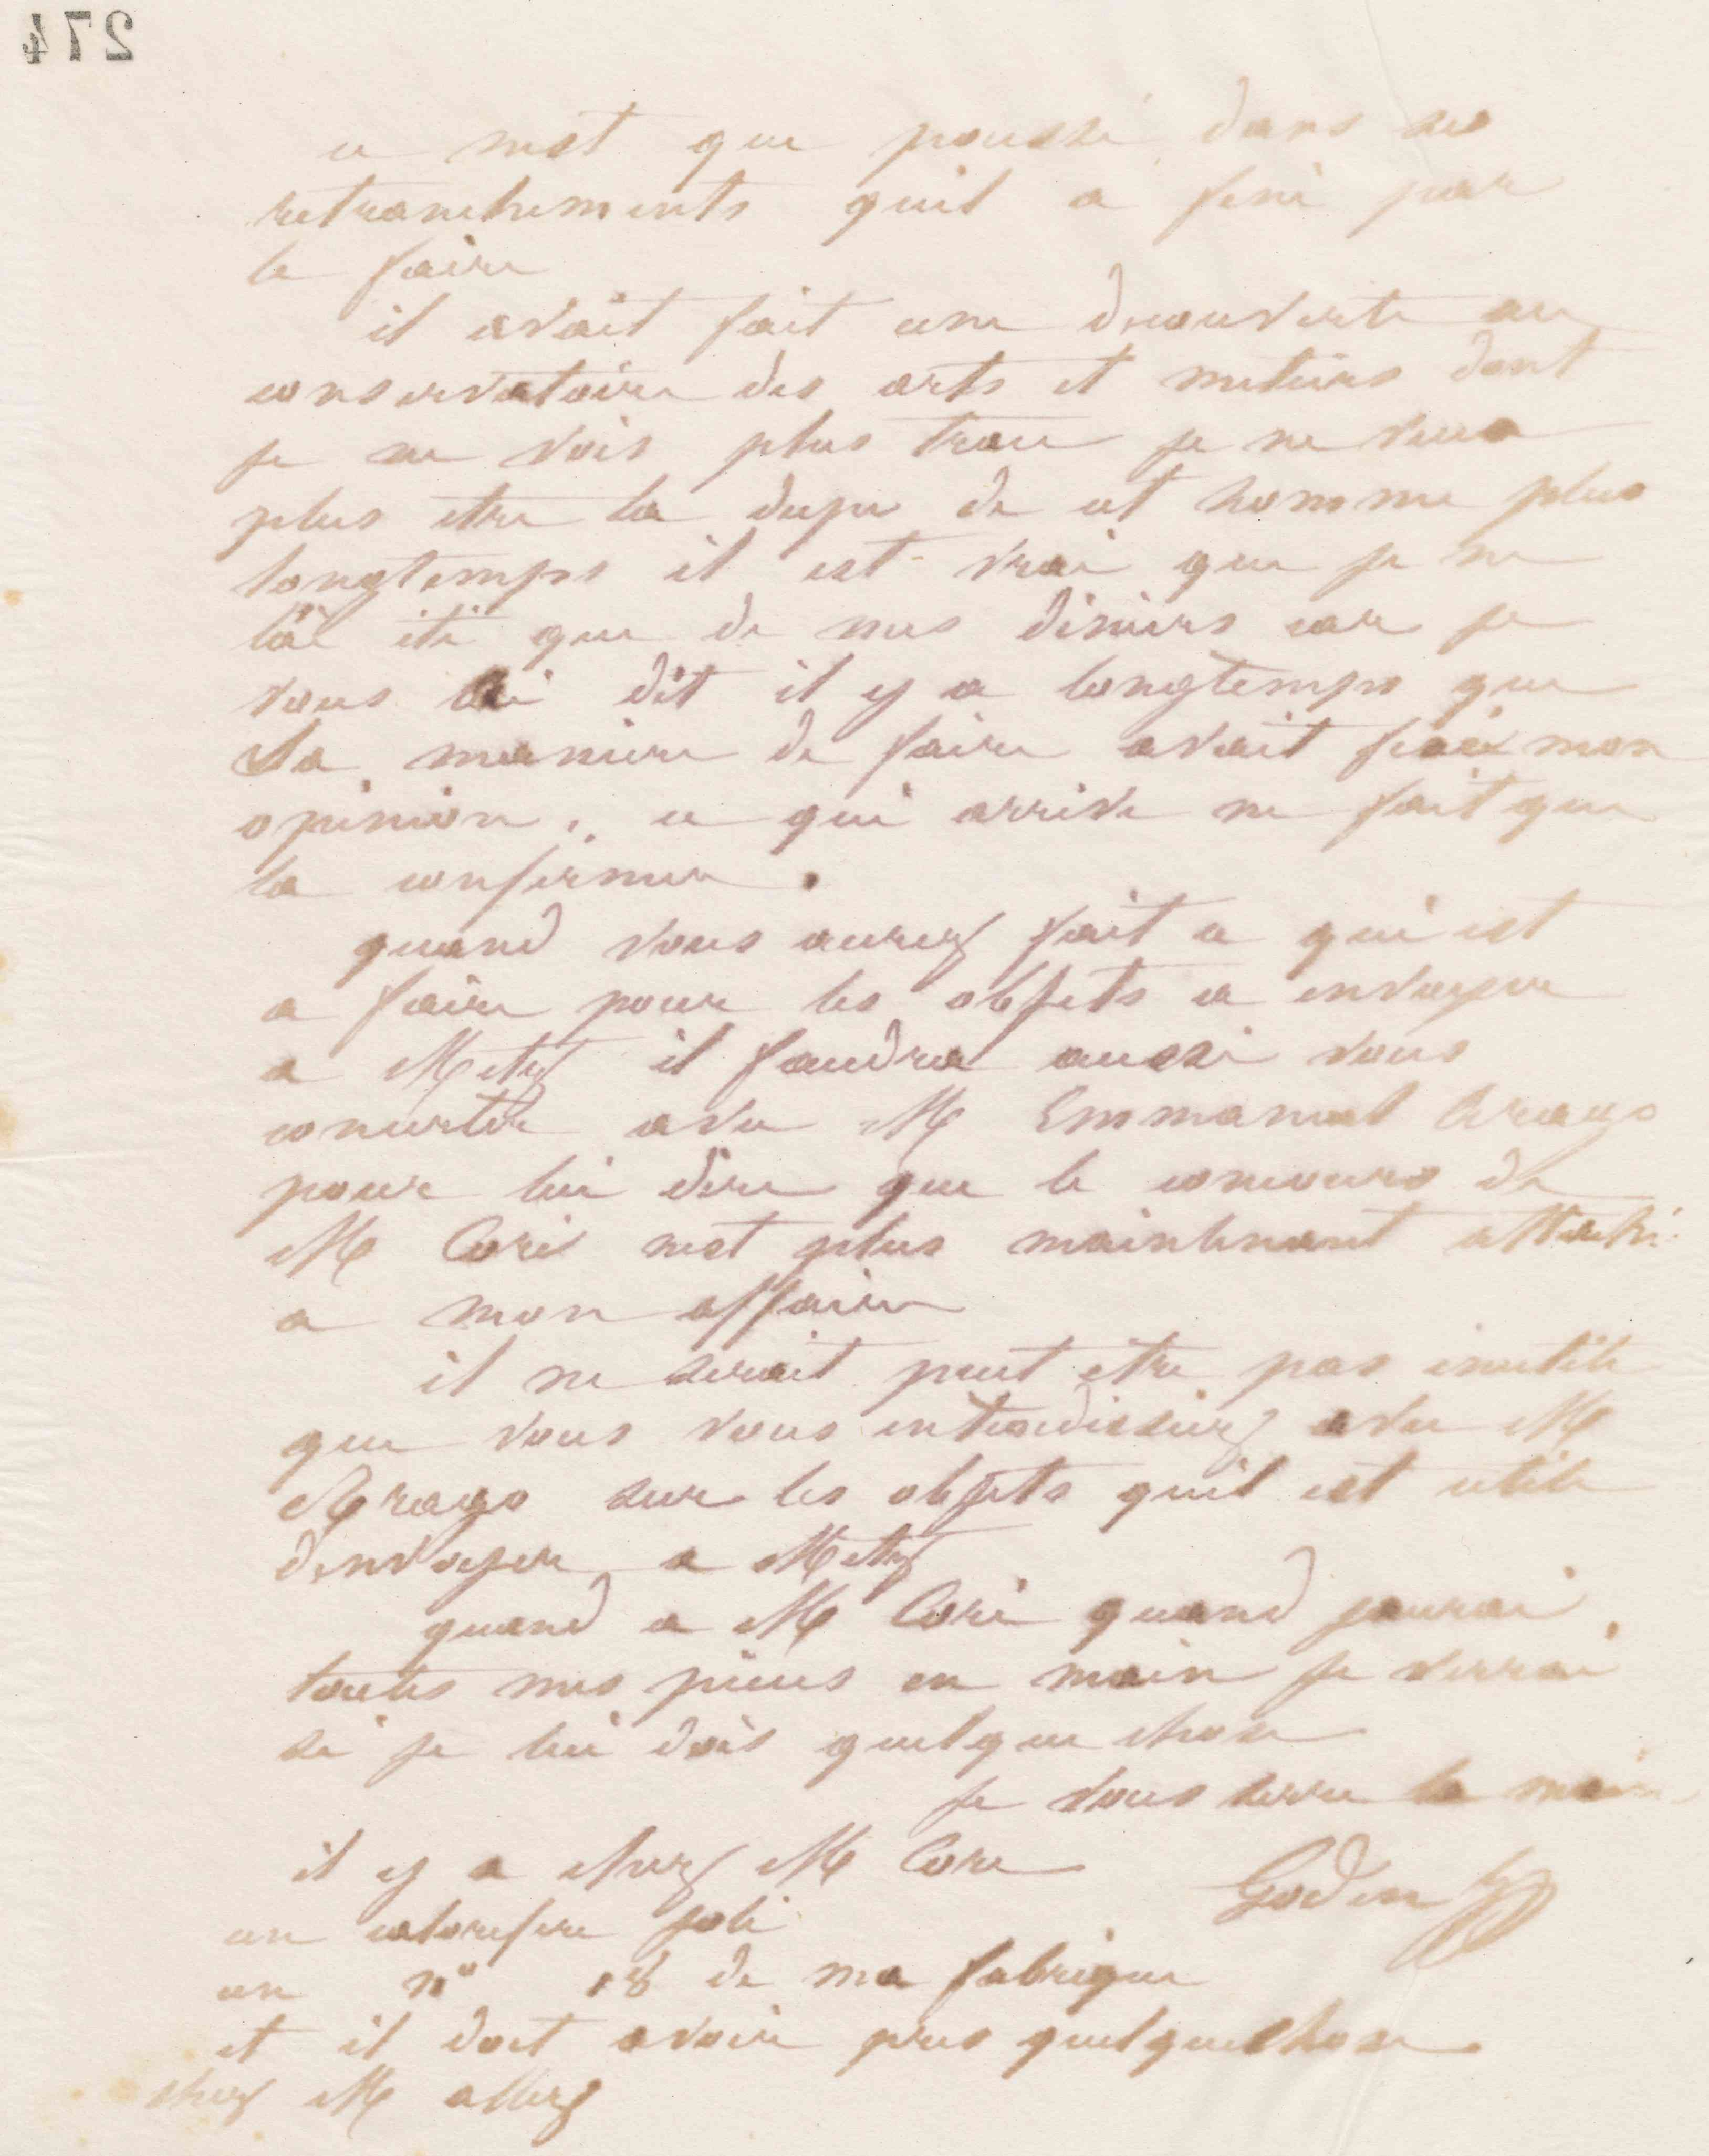 274
ce nest que poussé dans ses
retranchements quil a fini par
le faire
il avait fait une decouverte au
conservatoire des arts et metiers dont
je ne vois plus trace je ne veux
plus etre la dupe de cet homme plus
longtemps il est vrai que je ne
lai été que de mes deniers car je
vous ai dit il y a longtemps que
sa maniere de faire avait fixé mon
opinion, ce qui arrive ne fait que
la confirmer.
quand vous aurez fait ce qui est
a faire pour les objets a envoyer
a Metz il faudra aussi vous
concerter avec M Emmanuel Arago
pour lui dire que le concours de
M Coré nest plus maintenant attaché
a mon affaire
il ne serait peut etre pas inutile
que vous vous entendissiez avec M
Arago sur les objets quil est utile
denvoyer a Metz
quand a M Coré quand jaurai
toutes mes pieces en main je verrai
si je lui dois quelque chose
je vous serre la main
il y a chez M Core
Godin
un calorifere joli
un n° 18 de ma fabrique
et il doit avoir pris quelquechose
chez M allez